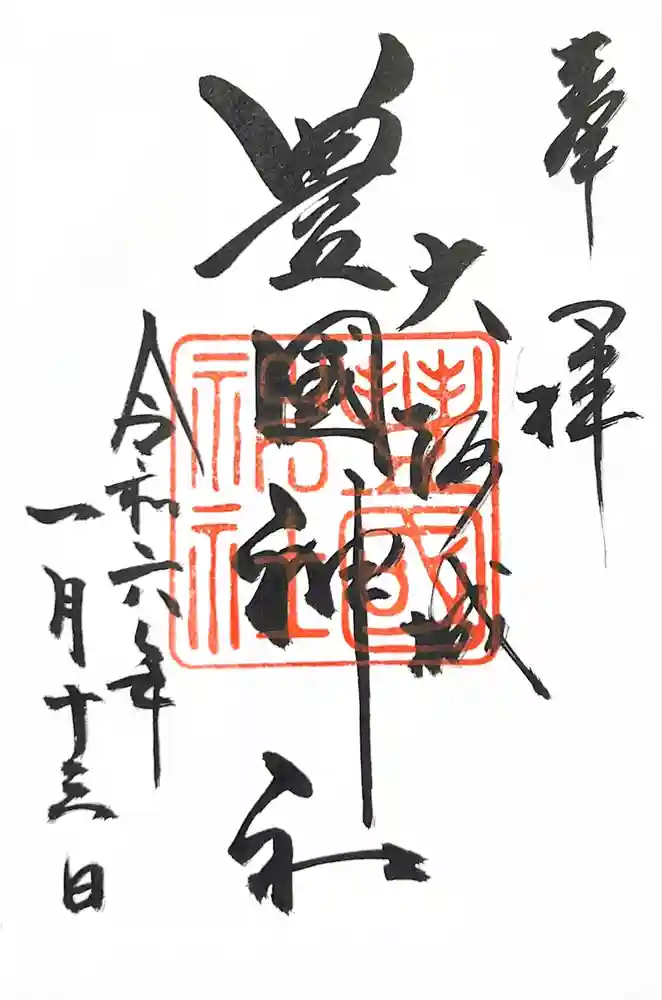 奉拝
大阪城
豊國神社
令和六年
一月十三日
豊國
神社